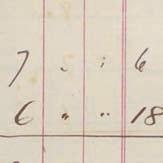 7 " " 6
6 " " 18